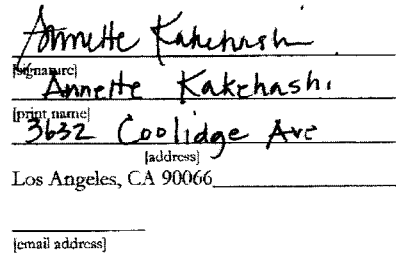 Annette Kakehashi
[signature]
Annette Kakehashi
[print name]
3632 Coolidge Ave
[address]
Los Angeles, CA 90066
[email address]